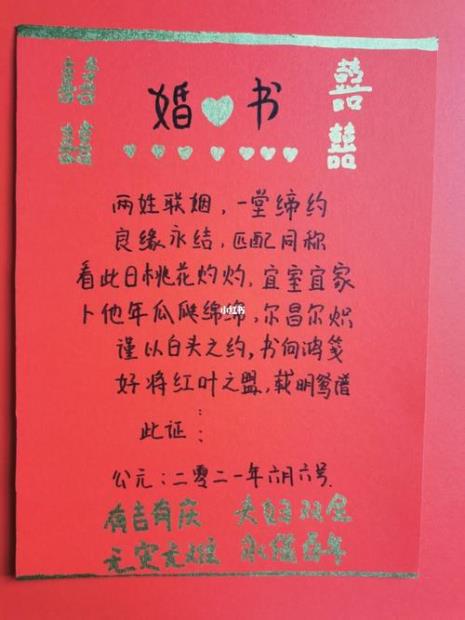 囍 囍
婚书
囍 囍
两姓联姻，一堂缔约
良缘永结，匹配同称
看此日桃花灼灼，宜室宜家
卜他年瓜瓞绵绵，尔昌尔炽
小红书
谨以白头之约，书向鸿笺
好将红叶之盟，载明鸳谱
此证：
公元：二零二一年六月六号
有吉有庆 夫妇双全
无灾无难 永保百年